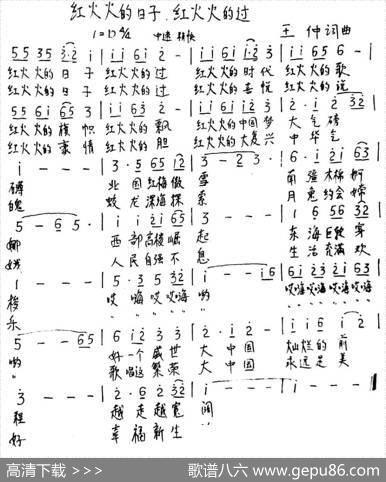 红火火的日子 红火火的过
1=D 4/4 中速 稍快 王 仲 词曲
5 5 3 5 3·2 i | i i 6 i 2 - | i i 6 i i·2 3 | i i 6 5 6 - |
红火火的 日 子 红火火的 过 红火火的 时 代 红火火的 歌
红火火的 日 子 红火火的 过 红火火的 喜 悦 红火火的 说
5 5 6 i 6 5 3 | i i 6 3 2 - | i i 6 i i·2 3 | 2 · i 2 3 2 |
红火火的 旗 帜 红火火的 飘 红火火的 中国 梦 大 气 磅
红火火的 豪 情 红火火的 胆 红火火的 大复 兴 中 华 气
i - - - | 3 · 5 6 5 1 2 | 3 - 2 3 - | 6 · i 2 i 6 3 |
礴 北 国 红梅 傲 雪 南 疆 木棉 婀
魄 蛟 龙 深海 探 索 月 兔 约会 嫦
5 - 6 5 - | i i 2 i 6 5 | 3 - - - | 1 6 5 6 3 2 |
娜 西 部 高楼 崛 起 东 海 巨龙 穿
娥 人 民 自强 不 息 生 活 充满 欢
1 - - - | 5 · 3 5 3 2 | i - - i 6 |
梭 哎 嗨 哎 哎嗨 哟 哎嗨 哎嗨 哎嗨 哎嗨
乐
5 - - 6 5 | 6 i 2 3 3 | 2 · i 2 - | i i 6 i 2 |
哟 好 一个 盛 世 大 中 国 灿烂的 前
歌唱这 繁 荣 大 中 国 永远是 美
3 - - - | 2 · 6 2 3 2 | i - - - | i - - - ‖
程 越 走 越 宽 阔
好 幸 福 新 生
高清下载 >>> 歌谱八六 www.gepu86.com